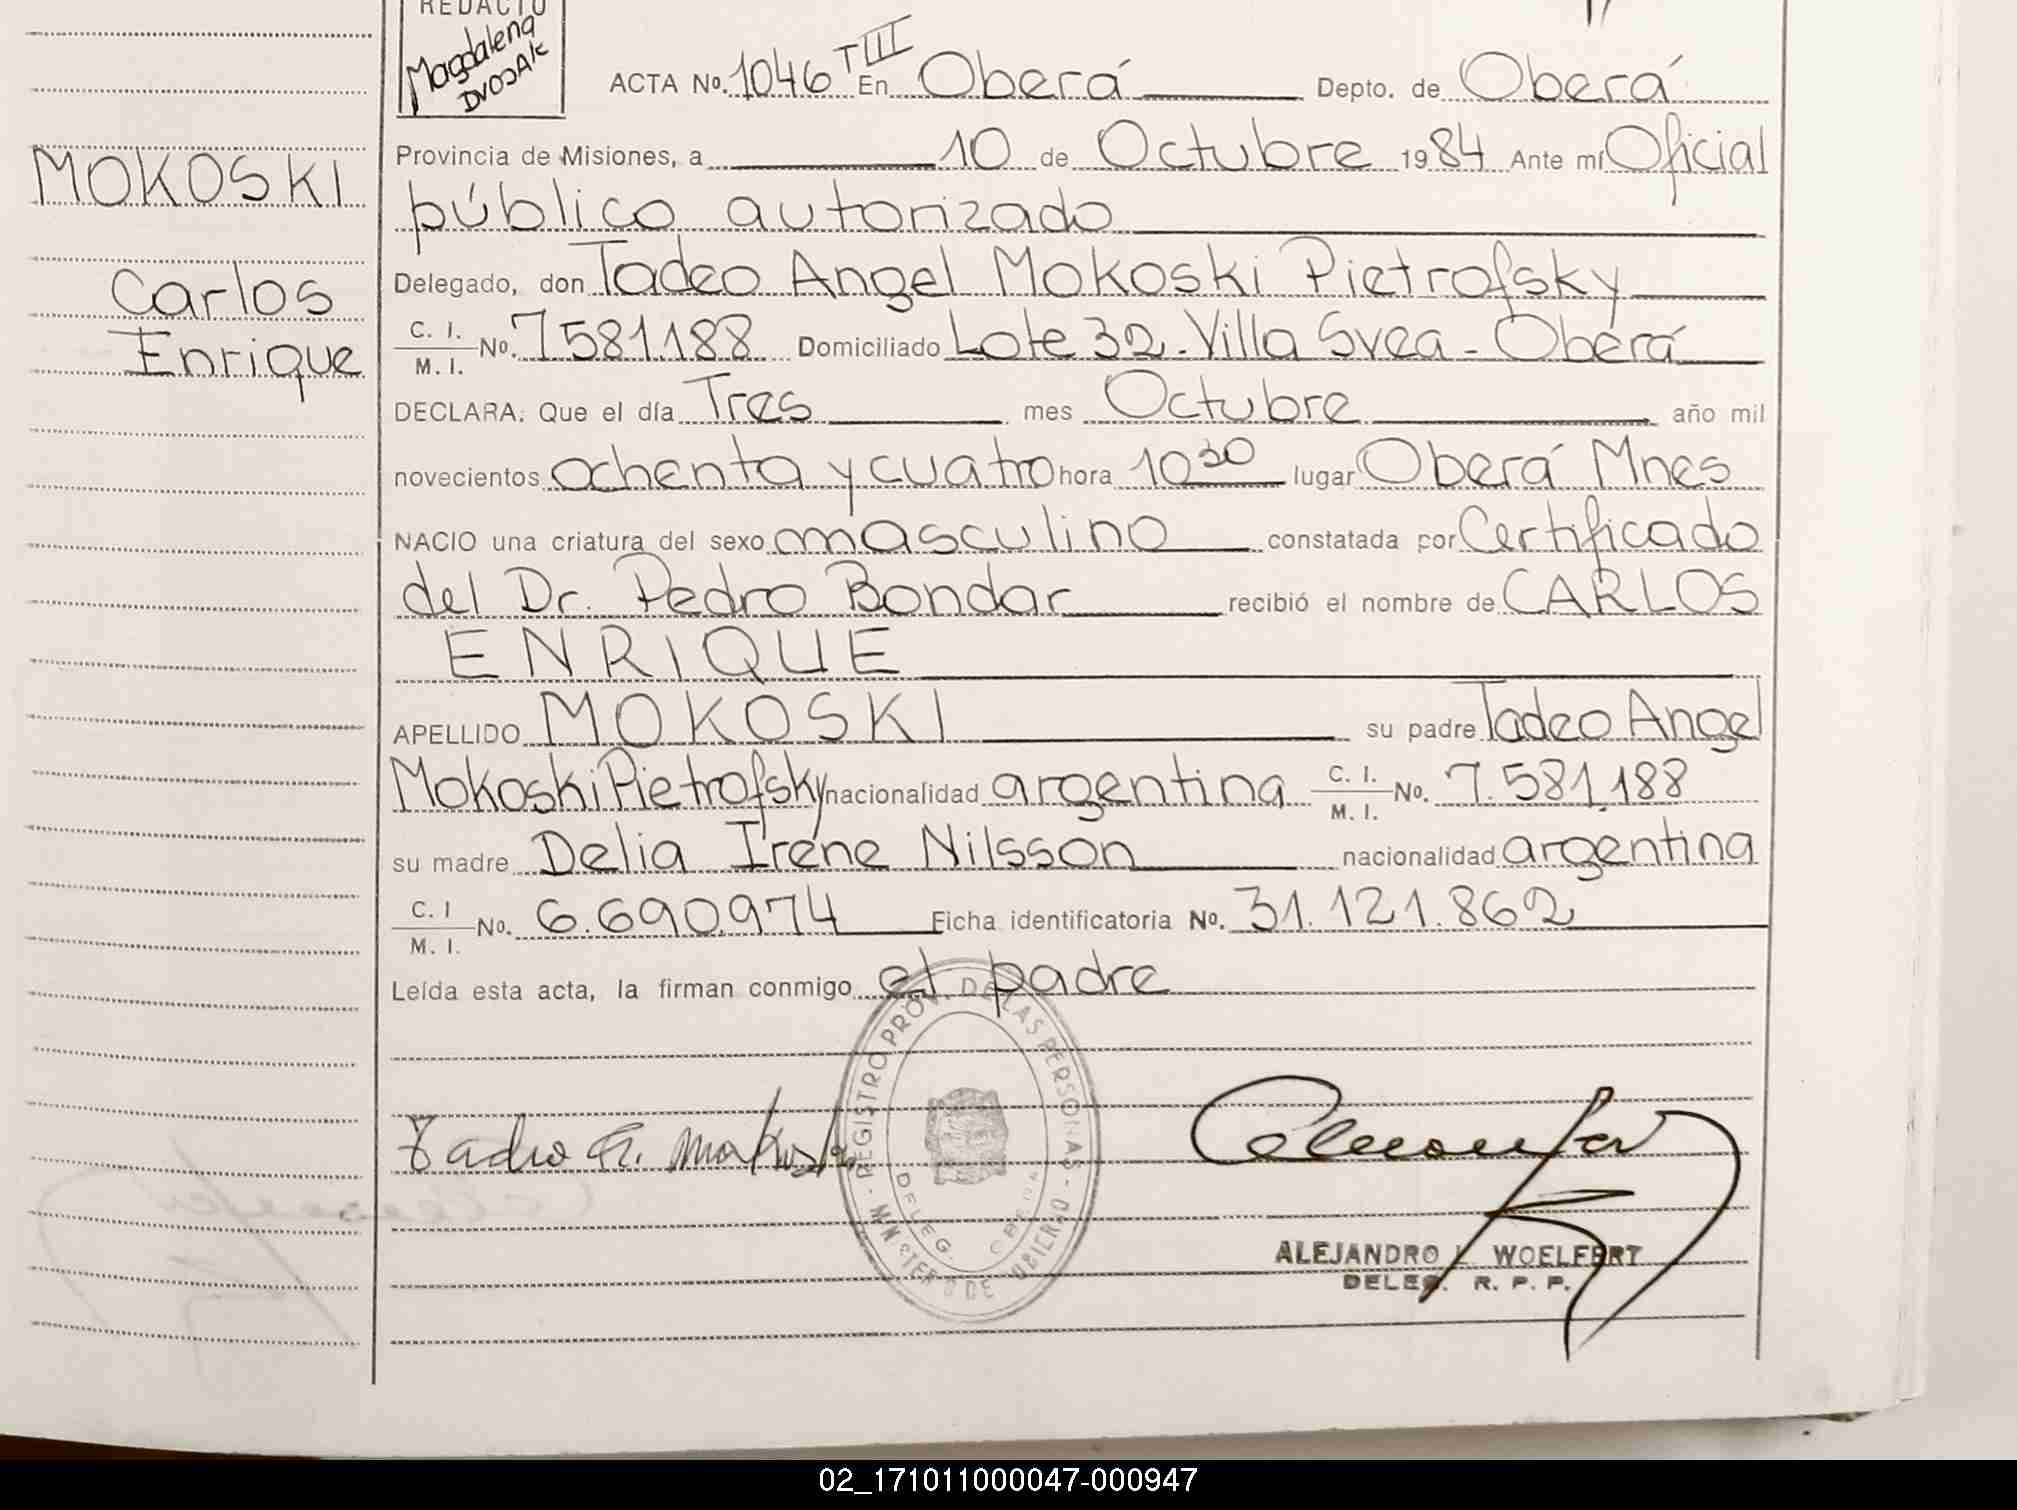 REDACTO
Magdalena
DVOSAK
ACTA No. 1046 TIII En Oberá Depto. de Oberá
Provincia de Misiones, a 10 de Octubre 1984 Ante mí Oficial
público autorizado
MOKOSKI
Carlos
Enrique
Delegado, don Tadeo Angel Mokoski Pietrofsky
C. I. M. I. No. 7581.188 Domiciliado Lote 32 - Villa Svea - Oberá
DECLARA: Que el día Tres mes Octubre año mil
novecientos ochenta y cuatro hora 10 30 lugar Oberá Mnes
NACIO una criatura del sexo masculino constatada por Certificado
del Dr. Pedro Bondar recibió el nombre de CARLOS
ENRIQUE
APELLIDO MOKOSKI su padre Tadeo Angel
Mokoski Pietrofsky nacionalidad argentina C. I. M. I. No. 7.581.188
su madre Delia Irene Nilsson nacionalidad argentina
C. I M. I. No. 6.690.974 Ficha identificatoria No. 31.121.862
Leída esta acta, la firman conmigo el padre
REGISTRO PROV. DE LAS PERSONAS - MINISTERIO DE GOBIERNO -
DELEG. OBERA
Tadeo A. Mokoski
ALEJANDRO L. WOELFERT
DELEG. R. P. P.
02_171011000047-000947